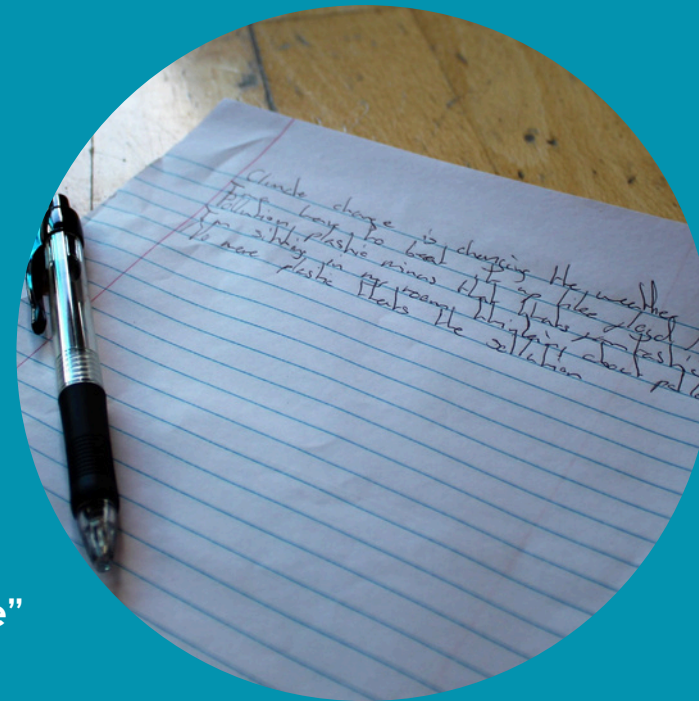 Climate change is changing the weather
I'm having to heat it up like
Pollution, plastic minus that thats fantastic
I'm sitting in my room thinking about
No more plastic thats the sollution
e”